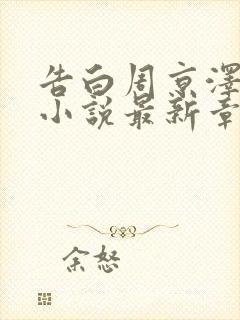 告白周京澤
小說最新章
余怒